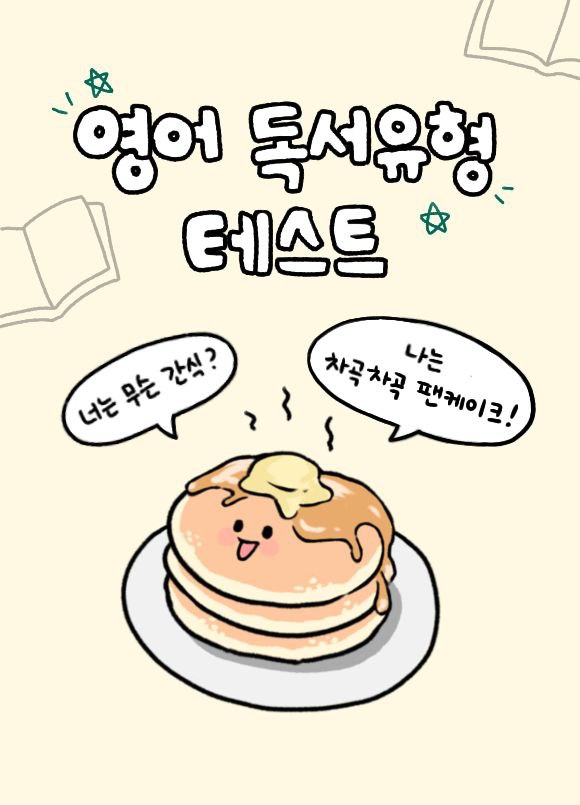 영어 독서유형
테스트
너는 무슨 간식?
나는
차곡차곡 팬케이크!